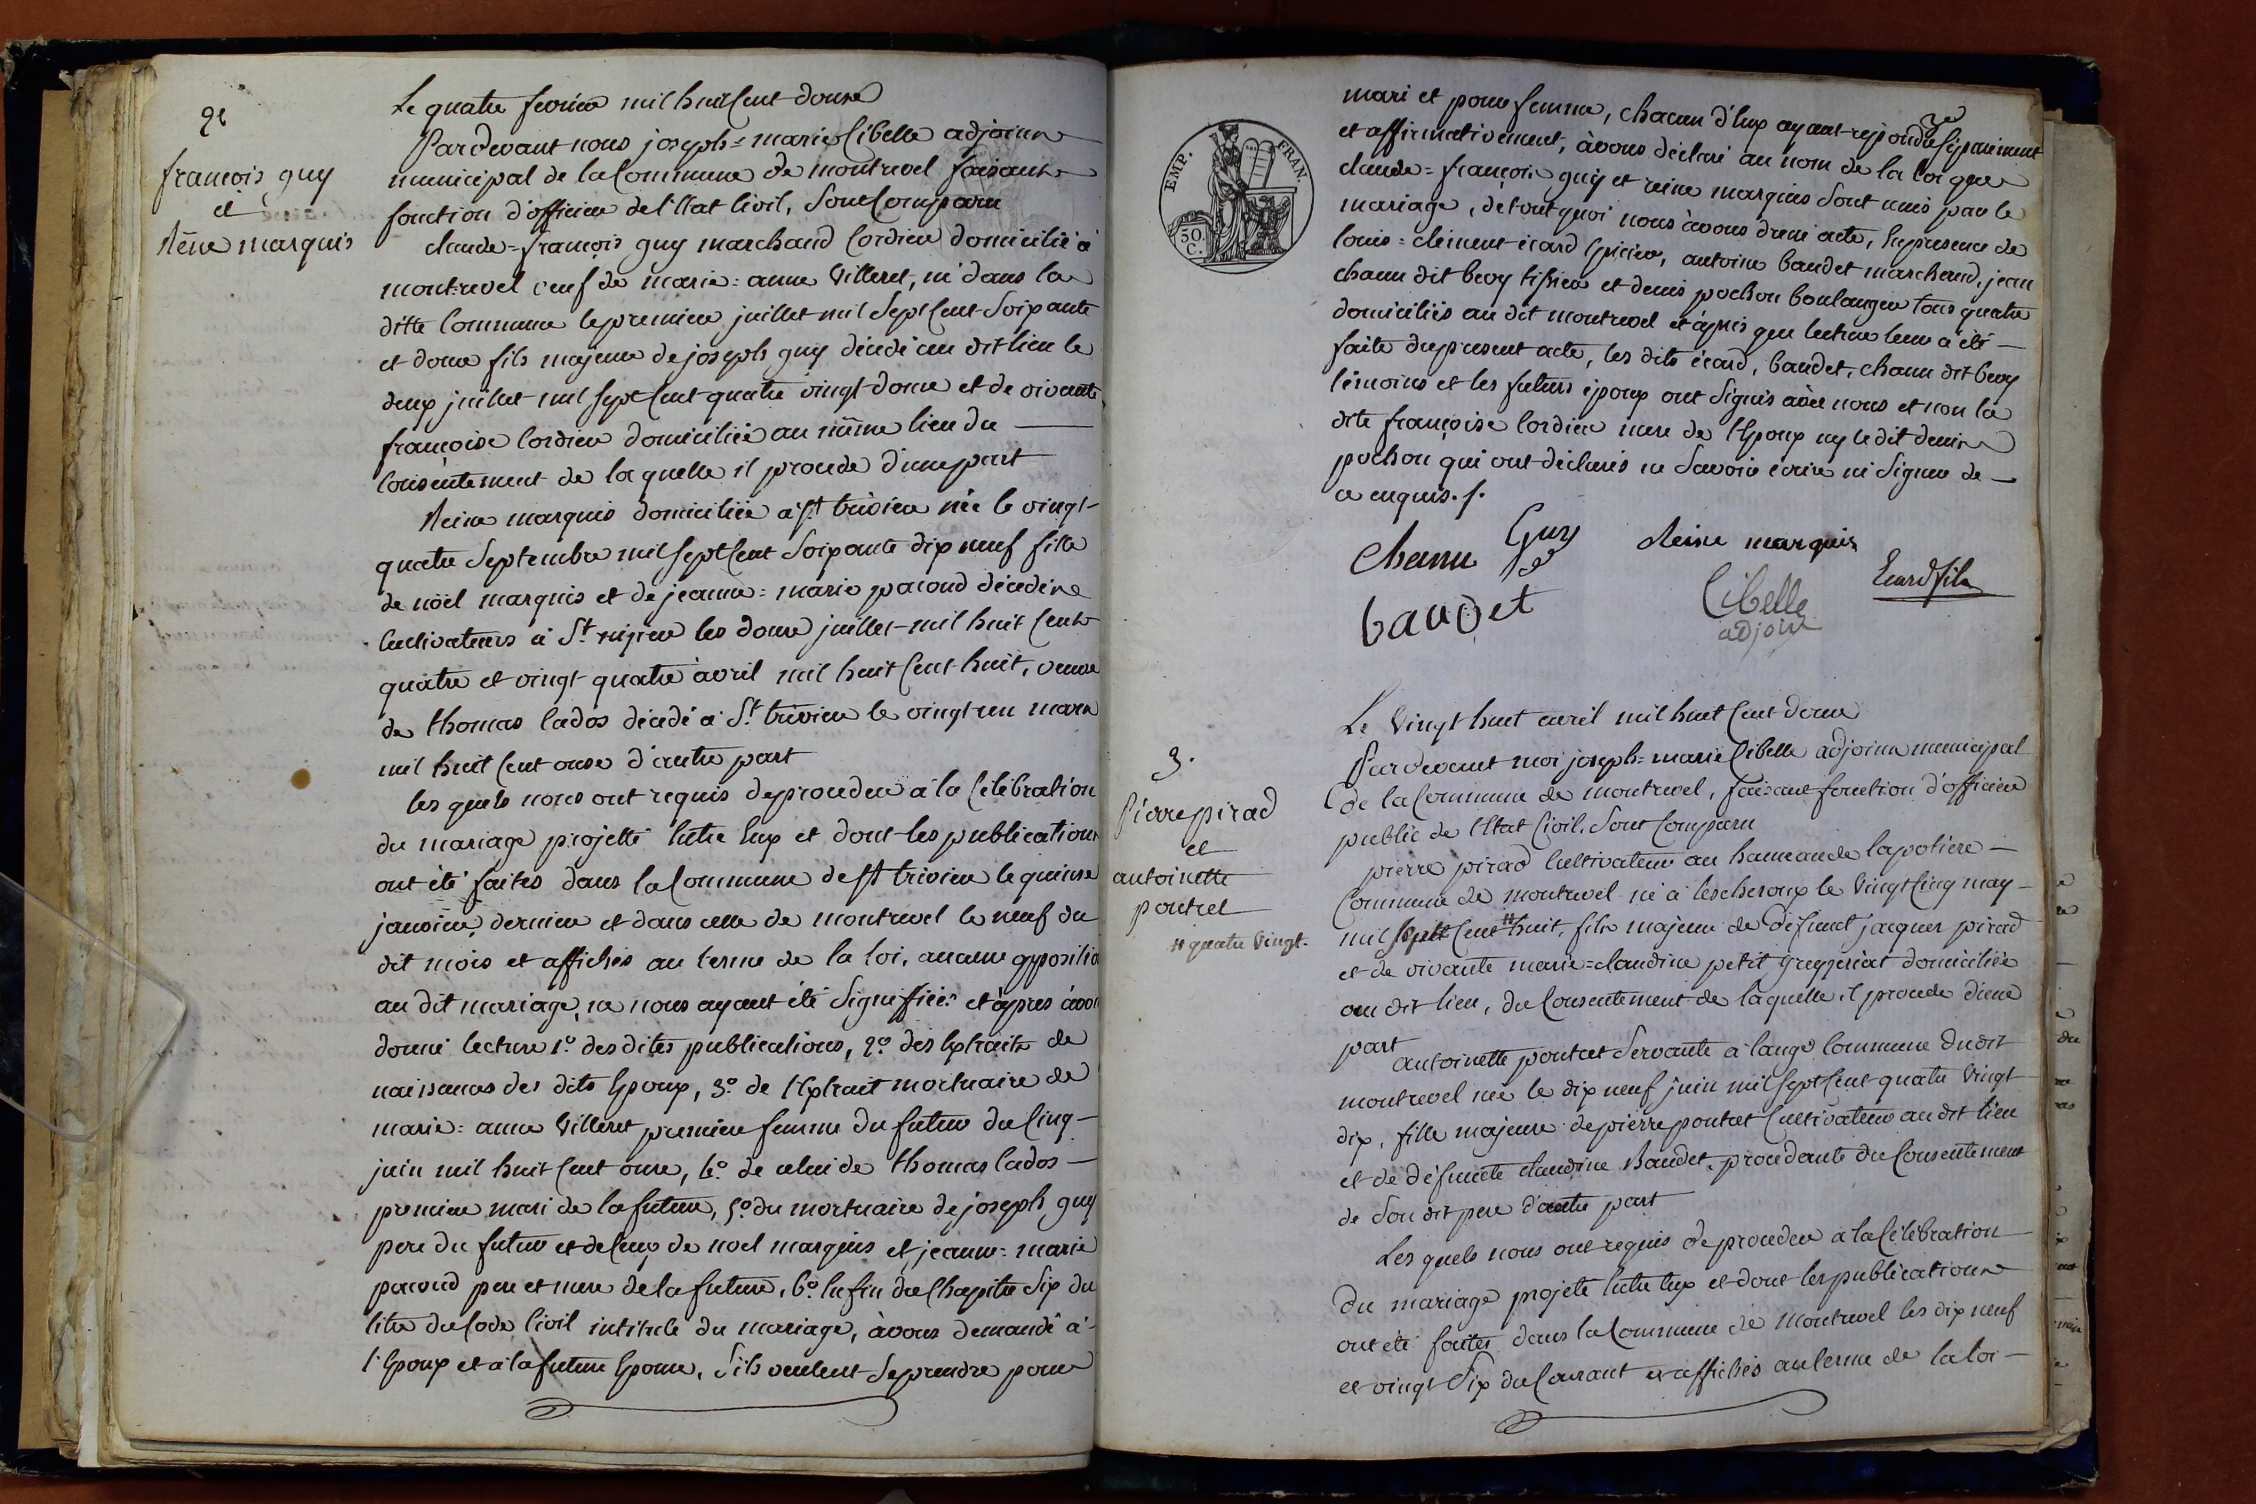 2e
françois guy
et
Reine marquis
Le quatre fevrier mil huit Cent douze
Pardevant nous joseph=marie Cibelle adjoint
municipal de la Commune de montrevel faisant
fonction d'officier de l'Etat Civil, Sont Comparu
claude=françois guy marchand Cordier domicilié à
montrevel veuf de marie=anne Villeret, né dans la
ditte Commune le premier juillet mil Sept Cent Soixante
et douze fils majeur de joseph guy décédé au dit lieu le
deux juillet mil Sept Cent quatre vingt douze et de vivante
françoise Cordier domiciliée au même lieu du
Consentement de la quelle il procede d'une part
Reine marquis domiciliée à St trivier née le vingt-
quatre Septembre mil Sept Cent Soixante dix neuf fille
de noël marquis et de jeanne=marie pacoud décédés
Cultivateurs à St les douze juillet mil huit Cent
quatre et vingt quatre avril mil huit Cent huit, veuve
de thomas Cados décédé à St trivier le vingt un mars
mil huit Cent onze d'autre part
les quels nous ont requis de proceder à la Célébration
du mariage projetté Entre Eux et dont les publications
ont été faites dans la Commune de St trivier le quinze
janvier dernier et dans celle de montrevel le neuf du
dit mois et affichés au terme de la loi, aucune oppositio
au dit mariage, ne nous ayant été Signiffiée et àprès avoi
donné lecture 1o. des dites publications, 2o. des Extraits de
naissances des dits Epoux, 3o. de l'Extrait mortuaire de
marie=anne Villeret premiere femme du futur du Cinq
juin mil huit Cent onze, 4o. de celui de thomas Cados
premier mari de la future, 5o. du mortuaire de joseph guy
pere du futur et de Ceux de noel marquis et jeanne=marie
pacoud pere et mere de la future, 6o. Enfin du Chapitre Six du
titre du Code Civil intitulé du mariage, àvons demandé à
l'Epoux et à la future Epouse, S'ils veulent Se prendre pour
EMP. FRAN.
50
C.
mari et pour femme, chacun d'Eux ayant repondre Séparément
et affirmativement, àvons déclaré au nom de la loi que
claude=françois guy et reine marquis Sont unis par le
mariage, de tout quoi nous àvons dressé acte, En presence de
louis=clément écard Epicier, antoine baudet marchand, jean
chanu dit bevy tissier et denis pochon boulanger tous quatre
domiciliés au dit montrevel et àprès que lecture leur a été
faite du présent acte, les dits écard, baudet, chanu dit bevy
témoins et les futurs époux ont Signés avec nous et non la
dite françoise Cordier mere de l'Epoux ny le dit denis
pochon qui ont déclarés ne Savoir écrire ni Signer de
ce enquis./.
Guy
Reine marquis
Chanu
Ecard fils
baudet
Cibelle
adjoint
3.
Pierre pirad
et
antoinette
pontet
# quatre Vingt.
Le Vingt huit avril mil huit Cent douze
Pardevant moi joseph=marie Cibelle adjoint municipal
de la Commune de montrevel, faisant fonction d'officier
public de l'Etat Civil. Sont Comparu
pierre pirad Cultivateur au hameau de lapotière
Commune de montrevel né à lescheroux le Vingt Cinq may
mil Sept Cent # huit, fils majeur de défunct jacques pirad
et de vivante marie=claudine petit domiciliée
au dit lieu, du Consentement de laquelle il procede d'une
part
antoinette pontet Servante à Commune dudit
montrevel née le dix neuf juin mil Sept Cent quatre Vingt
dix, fille majeure de pierre pontet Cultivateur au dit lieu
et de défuncte claudine Baudet, procedante du Consentement
de Son dit pere d'autre part
Les quels nous ont requis de proceder à la Célébration
du mariage projeté Entre Eux et dont les publications
ont été faites dans la Commune de Montrevel les dix neuf
et vingt Six du Courant et affichés au terme de la loi